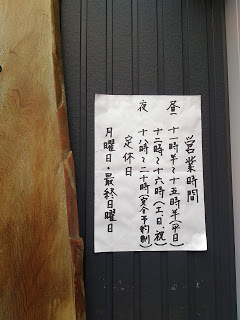 営業時間
昼 十一時半〜十五時半(平日)
十一時〜十六時(土日、祝)
夜 十八時〜二十時(完全予約制)
定休日
月曜日・最終日曜日